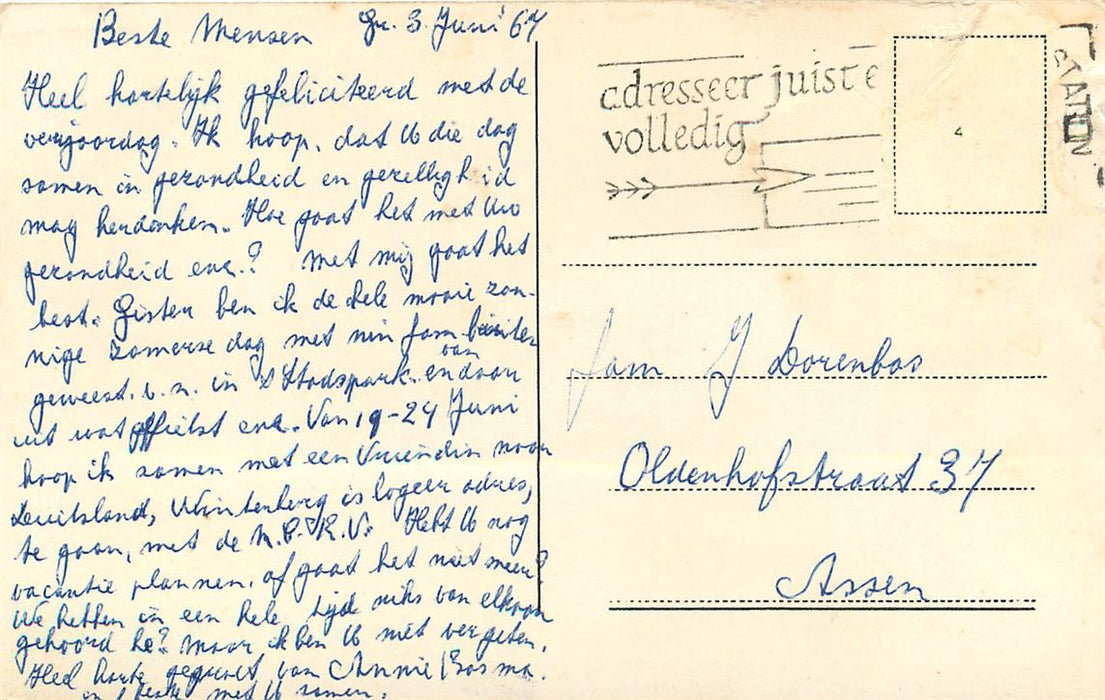 Beste Mensen Gr. 3 Juni 67
Heel hartelijk gefeliciteerd met de
verjaardag. Ik hoop, dat U die dag
samen in gezondheid en gezelligheid
mag herdenken. Hoe gaat het met Uw
gezondheid enz.? Met mij gaat het
best. Gisteren ben ik de hele mooie zon-
nige zomerse dag met mijn fam. buiten
geweest. b.n. in 's Stadspark. en daar
van
uit wat gefietst enz. Van 19-24 Juni
hoop ik samen met een Vriendin naar
Duitsland, Winterberg is logeer adres,
te gaan, met de N.C.R.V. Hebt U nog
vacantie plannen, of gaat het niet meer?
We hebben in een hele tijd niks van elkaar
gehoord hè? Maar ik ben U niet vergeten.
Heel harte gegroet van Annie Bosma.
en 't beste met U samen.
adresseer juist e
volledig
STATION
4
Fam J Dorenbos
Oldenhofstraat 37
Assen